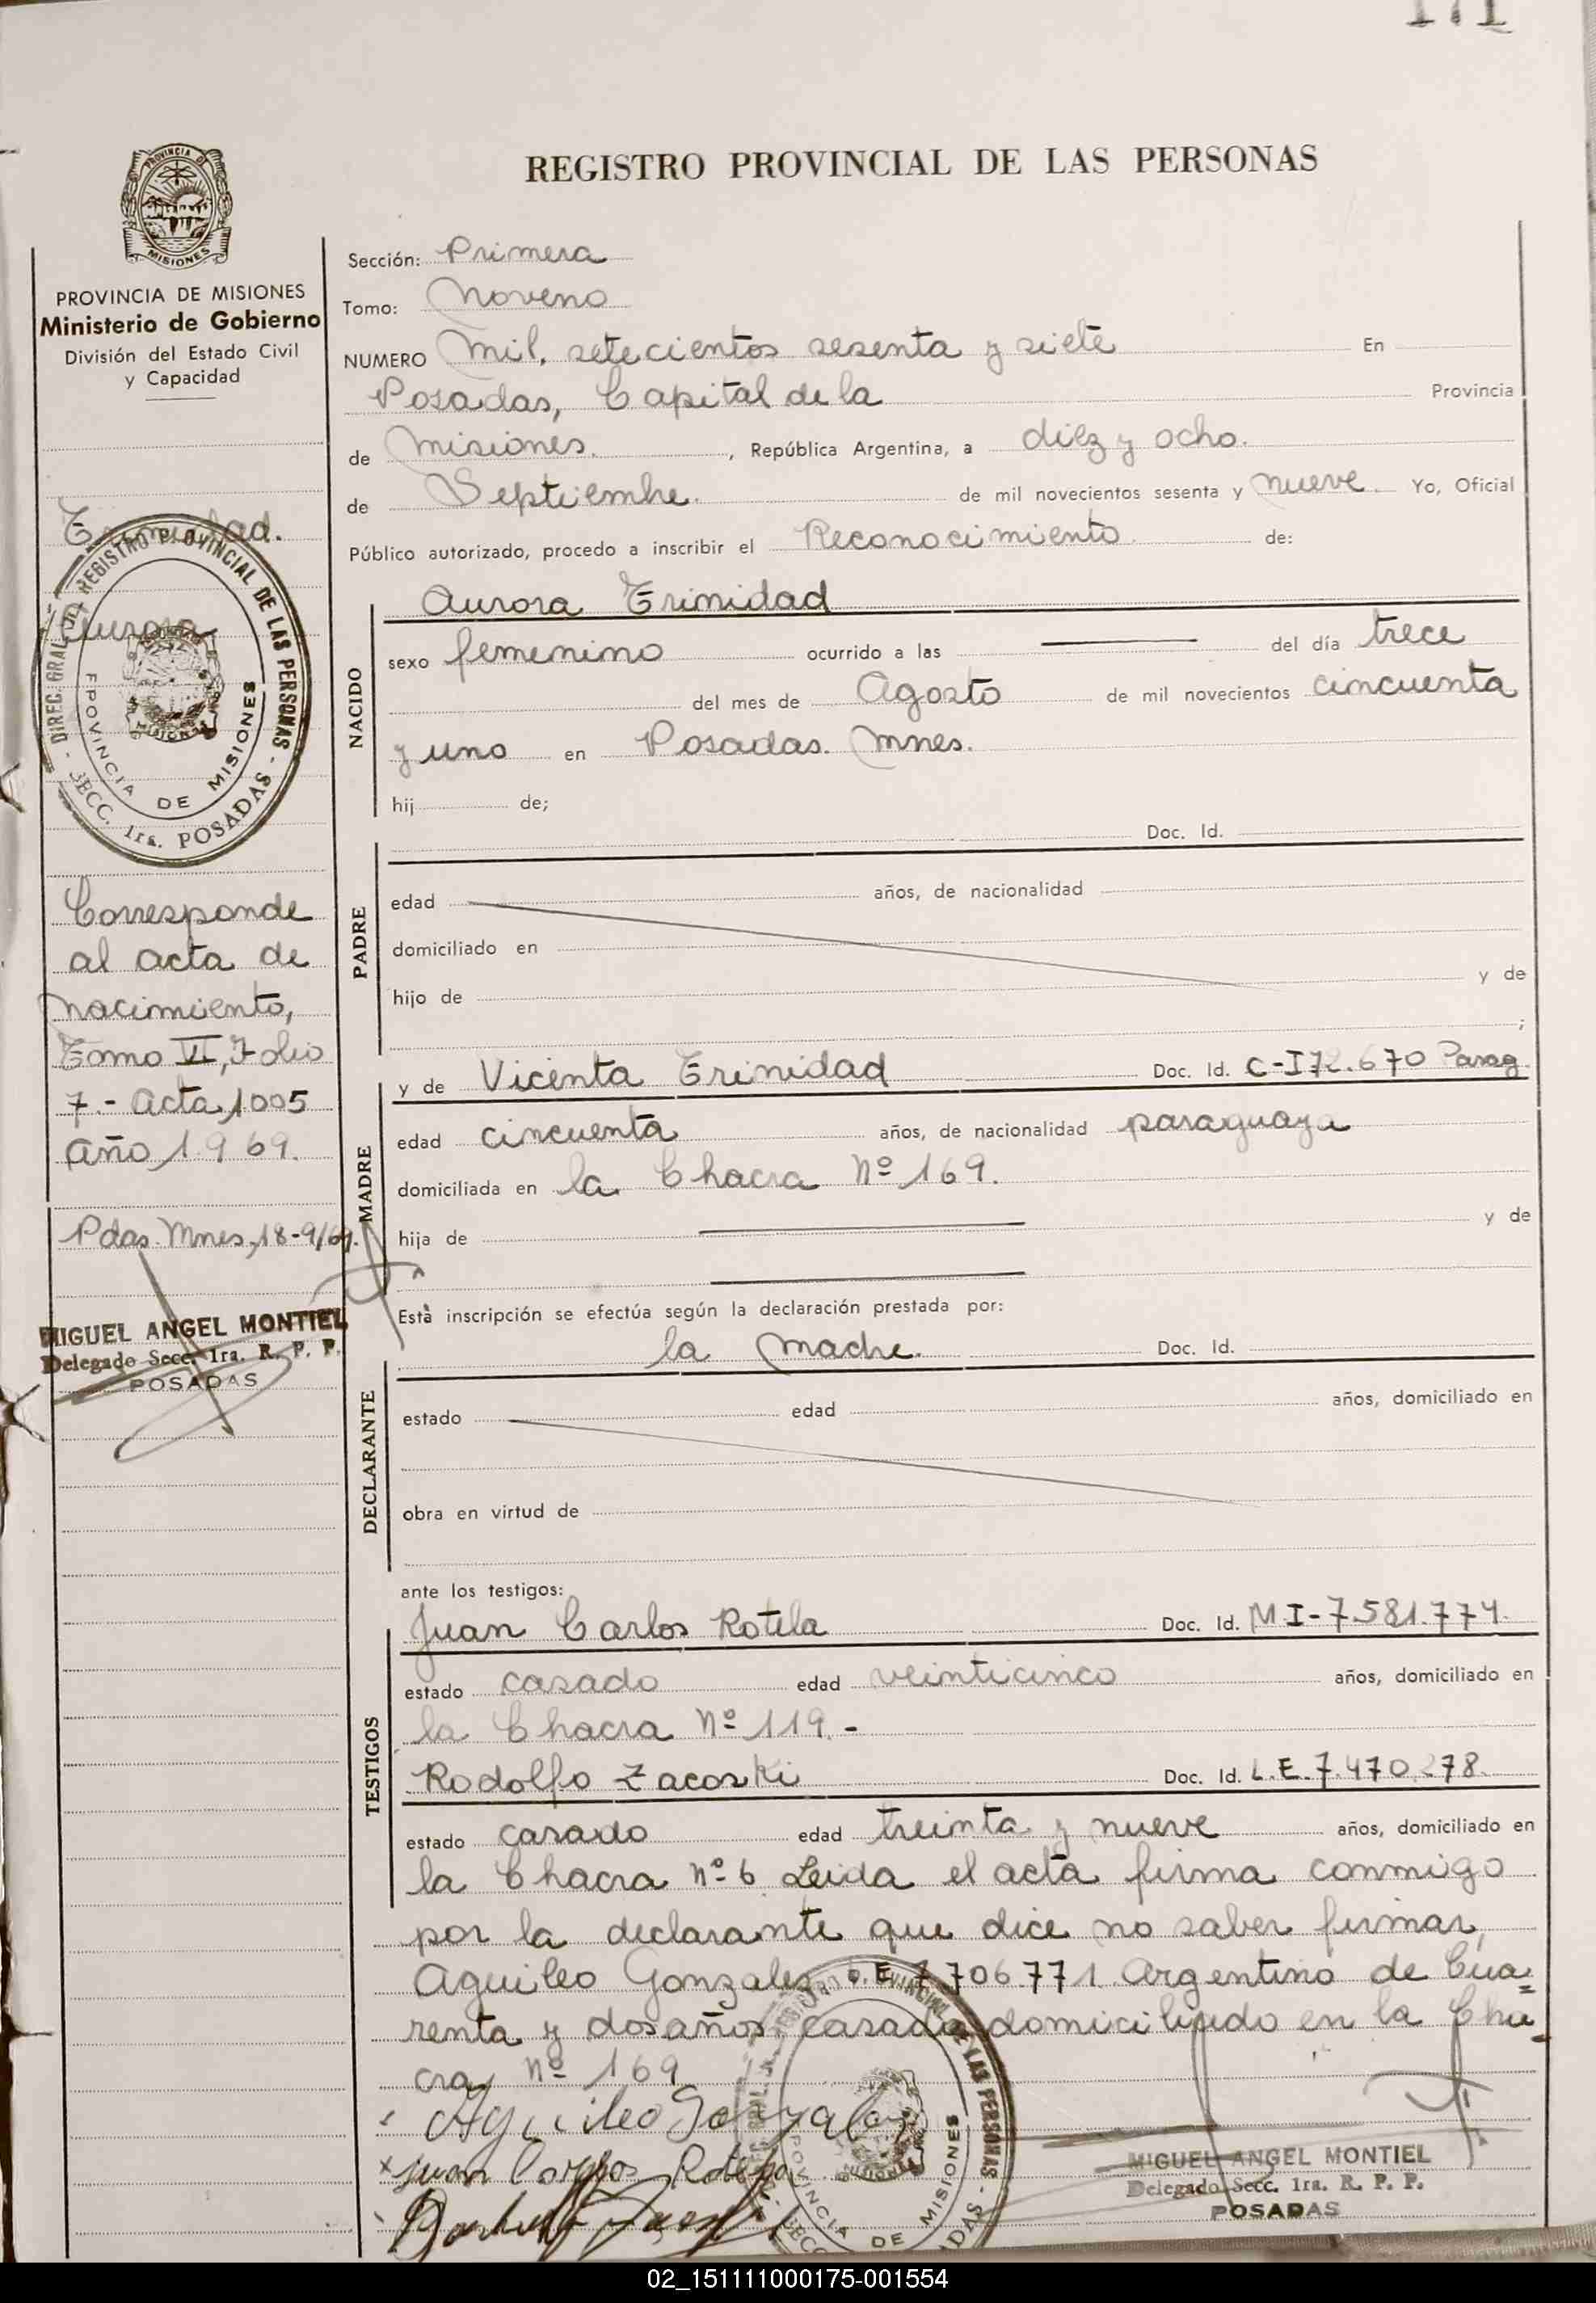 171
REGISTRO PROVINCIAL DE LAS PERSONAS
PROVINCIA DE MISIONES
Ministerio de Gobierno
División del Estado Civil
y Capacidad
Trinidad.
Aurora
DIREC. GRAL. DEL REGISTRO PROVINCIAL DE LAS PERSONAS - SECC. 1ra. POSADAS -
PROVINCIA DE MISIONES
Corresponde
al acta de
nacimiento,
Tomo VI, Folio
7.- Acta 1005
Año 1969.
Pdas. Mnes, 18-9/69.
MIGUEL ANGEL MONTIEL
Delegado Secc. 1ra. R. P. P.
POSADAS
Sección: Primera
Tomo: Noveno
NUMERO Mil, setecientos sesenta y siete En
Posadas, Capital de la Provincia
de Misiones. , República Argentina, a diez y ocho.
de Septiembre. de mil novecientos sesenta y nueve. Yo, Oficial
Público autorizado, procedo a inscribir el Reconocimiento. de:
NACIDO
Aurora Trinidad
sexo femenino ocurrido a las del día trece
del mes de Agosto de mil novecientos cincuenta
y uno en Posadas. Mnes.
hij de;
PADRE
Doc. Id.
edad años, de nacionalidad
domiciliado en
hijo de y de
;
MADRE
y de Vicenta Trinidad Doc. Id. C-I 72.670 Parag
edad cincuenta años, de nacionalidad paraguaya
domiciliada en la Chacra Nº 169.
hija de y de
Esta inscripción se efectúa según la declaración prestada por:
DECLARANTE
la madre. Doc. Id.
estado edad años, domiciliado en
obra en virtud de
ante los testigos:
TESTIGOS
Juan Carlos Rotela Doc. Id. M I-7.581.774.
estado casado edad veinticinco años, domiciliado en
la Chacra Nº 119.-
Rodolfo Zacoski Doc. Id. L.E. 7.470.278.
estado casado edad treinta y nueve años, domiciliado en
la Chacra Nº 6 Leida el acta firma conmigo
por la declarante que dice no saber firmar,
Aquileo Gonzalez L.E. 7.706.771. Argentino de Cua=
renta y dos años, casado domiciliado en la Cha-
cra Nº 169
Aquileo Gonzalez
Juan Carlos Rotela
PROVINCIA DE MISIONES
MIGUEL ANGEL MONTIEL
Delegado Secc. 1ra. R. P. P.
POSADAS
02_151111000175-001554